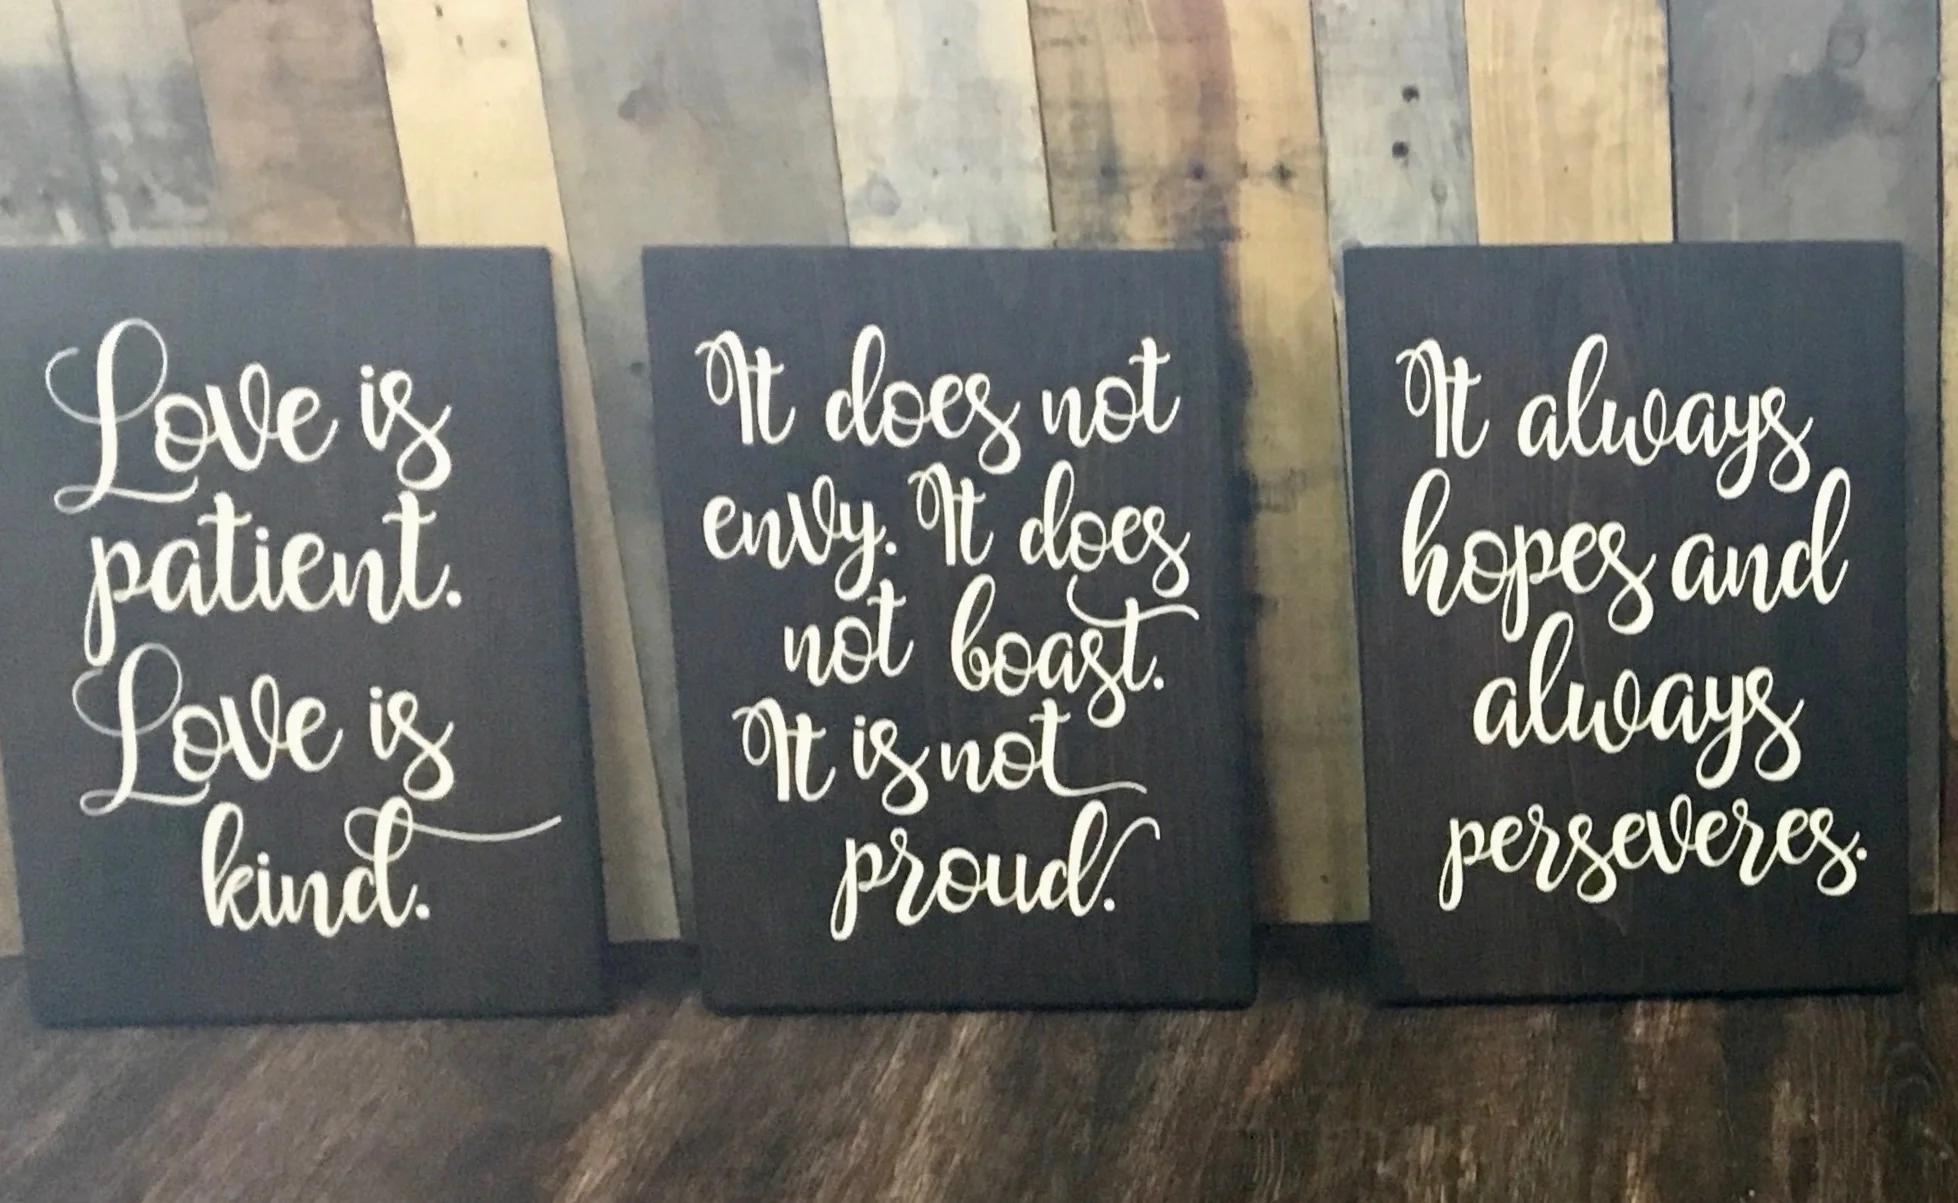 Love is
patient.
Love is
kind.
It does not
envy. It does
not boast.
It is not
proud.
It always
hopes and
always
perseveres.